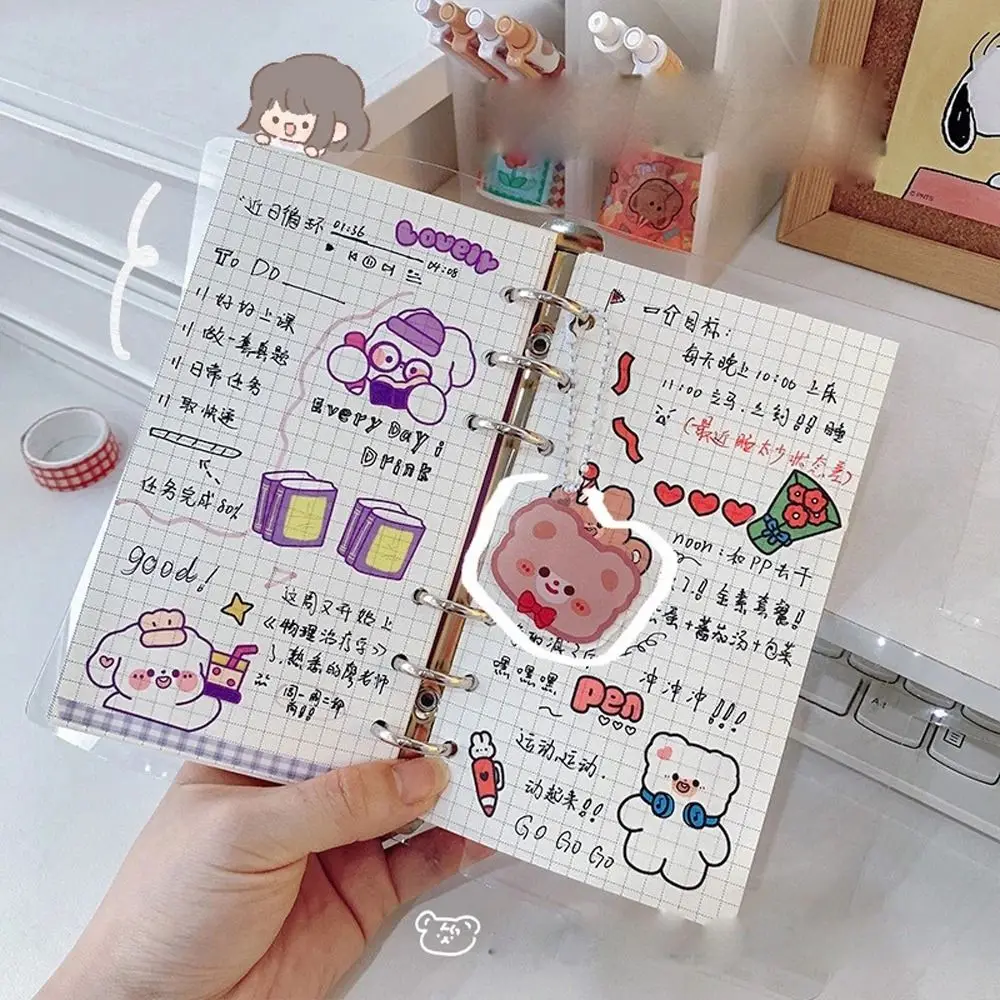 近日循环 01:36
04:08
Lovely
To Do
好好上课
做一套真题
日常任务
取快递
任务完成80%
Every Day!
Drink
good!
这周又开始上
《物理治疗学》
了,熟悉的廖老师
周一周二都
有!!
一个目标:
每天晚上10:00 上床
11:00 立马、立刻!!睡
(最近睡太少状态差)
noon:和PP去干
了!! 全素套餐!!
蛋+蕃茄汤+包菜
嘿嘿嘿
~
冲冲冲!!!
pen
运动、运动.
动起来!!
GO GO GO
© PNTS
Alt